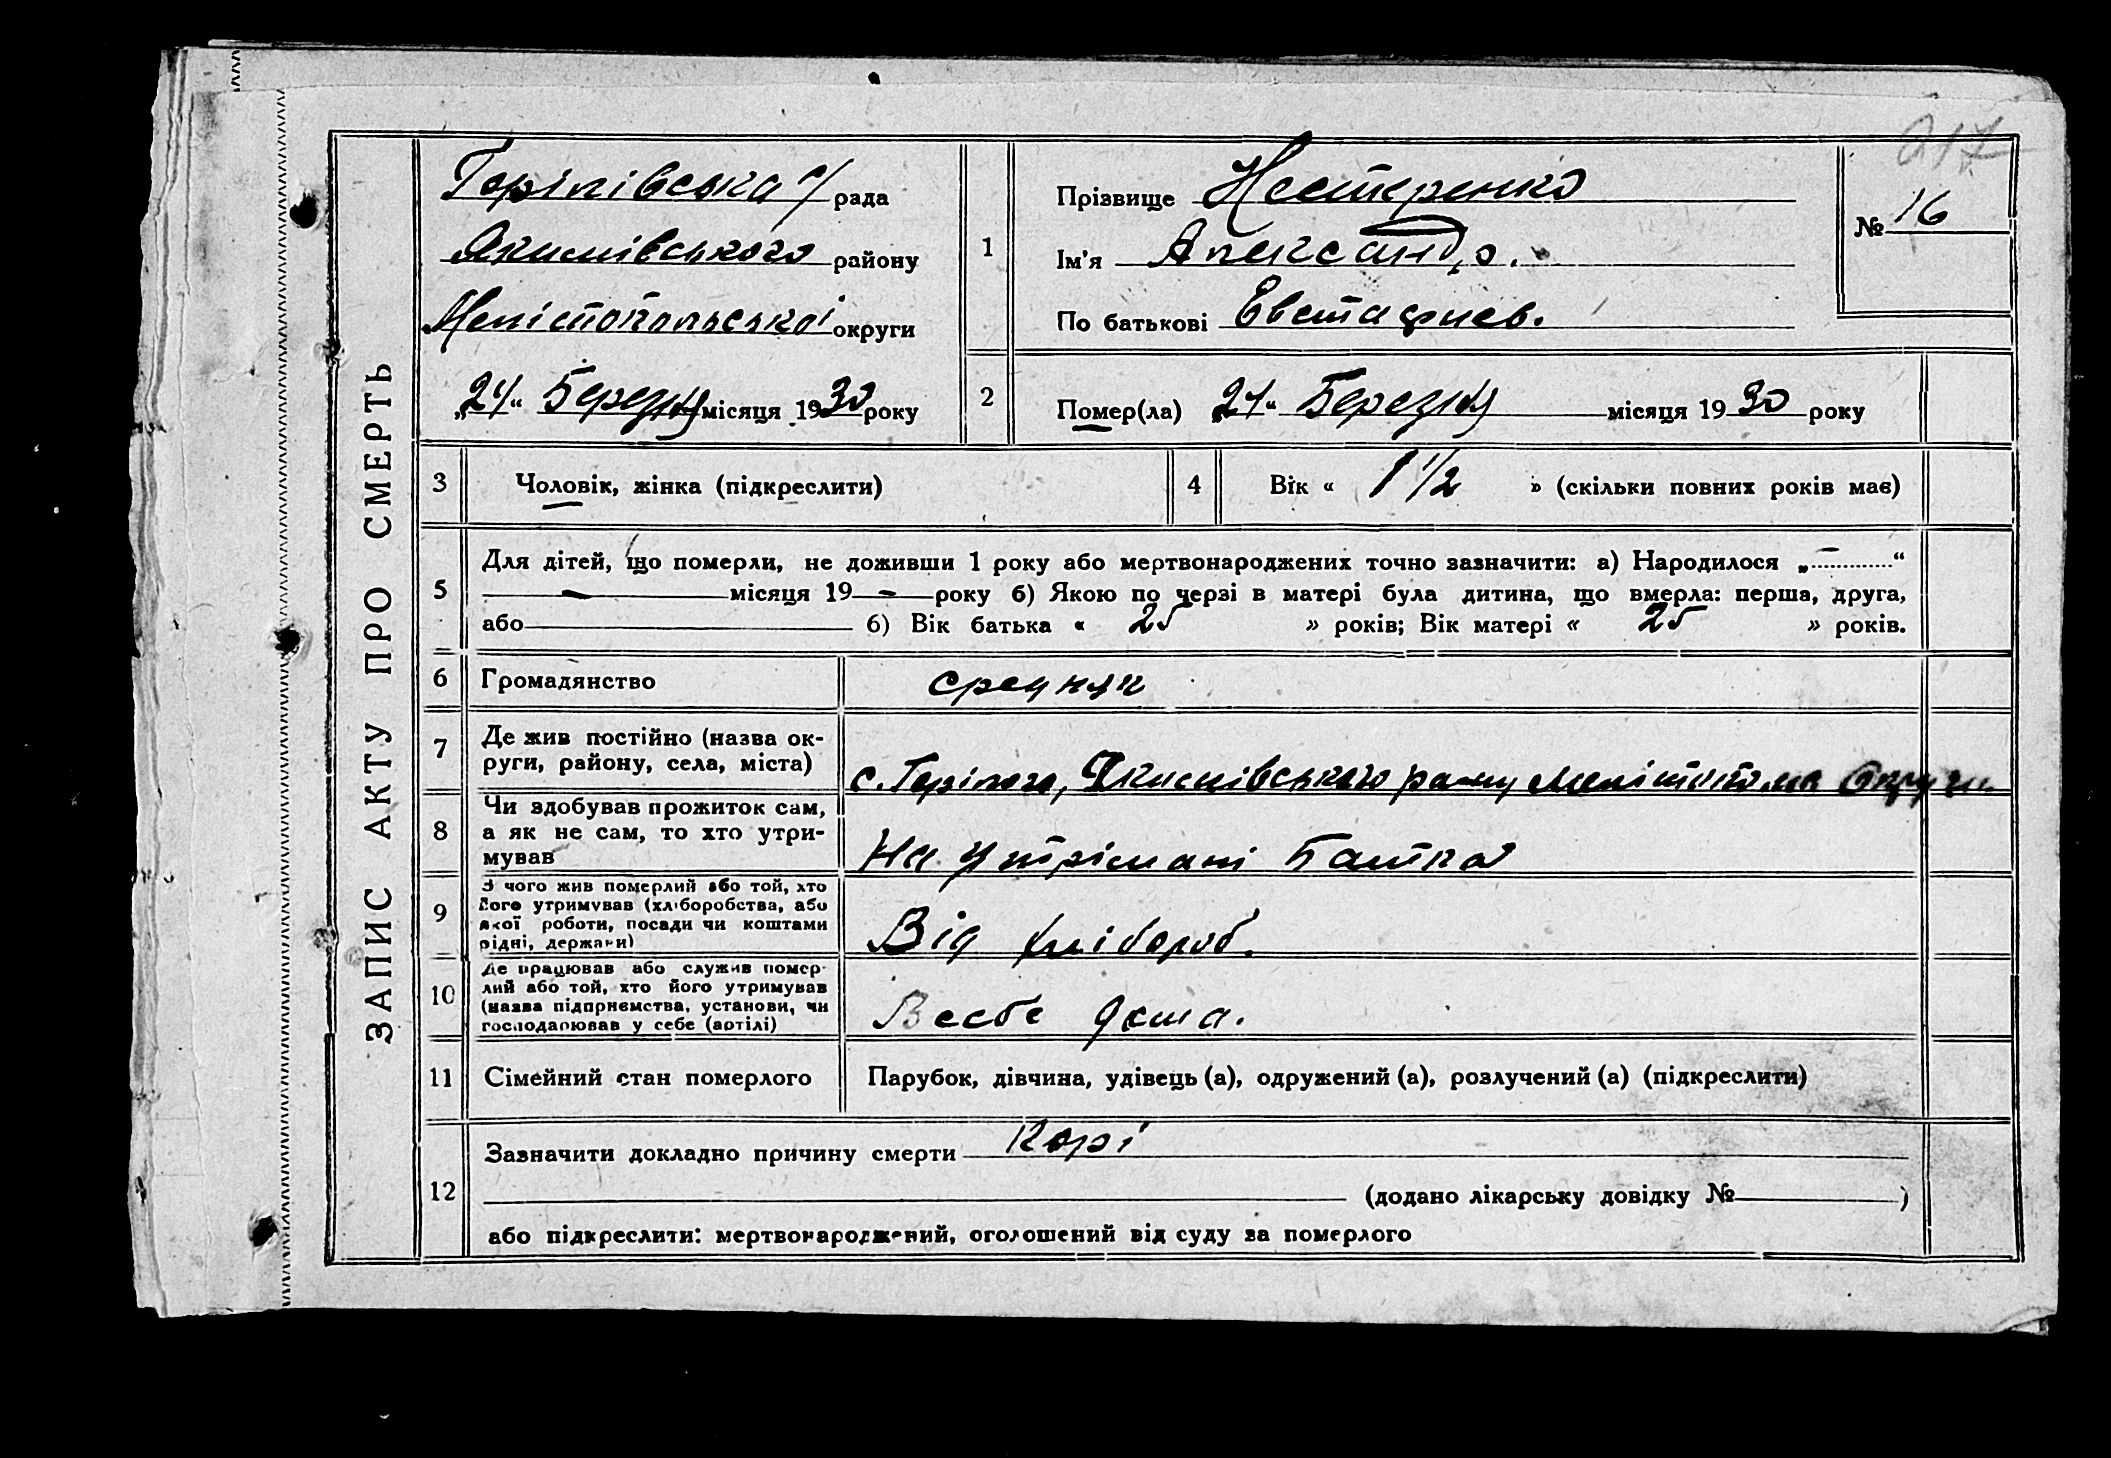 217
ЗАПИС АКТУ ПРО СМЕРТЬ
Горілівська с/рада
Якимівського району
Мелітопольської округи
„24“ Березня місяця 1930 року
1
Прізвище Нестеренко
Ім'я Александр.
По батькові Евстафиев.
№ 16
2
Помер(ла) „24“ Березня місяця 1930 року
3 Чоловік, жінка (підкреслити)
4 Вік « 1 1/2 » (скільки повних років має)
5
Для дітей, що померли, не доживши 1 року або мертвонароджених точно зазначити: а) Народилося „—“
— місяця 19 — року б) Якою по черзі в матері була дитина, що вмерла: перша, друга,
або б) Вік батька « 25 » років; Вік матері « 25 » років.
6 Громадянство средняк
7 Де жив постійно (назва ок-
руги, району, села, міста)
с. Якимівського району Округи
8 Чи здобував прожиток сам,
а як не сам, то хто утри-
мував
На утрімані батька
9 З чого жив померлий або той, хто
його утримував (хліборобства, або
якої роботи, посади чи коштами
рідні, держави)
Від хлібороб.
10 Де працював або служив помер-
лий або той, хто його утримував
(назва підприємства, установи, чи
господарював у себе (артілі)
В себе дома.
11 Сімейний стан померлого Парубок, дівчина, удівець (а), одружений (а), розлучений (а) (підкреслити)
12
Зазначити докладно причину смерти Корі
(додано лікарську довідку № )
або підкреслити: мертвонароджений, оголошений від суду за померлого